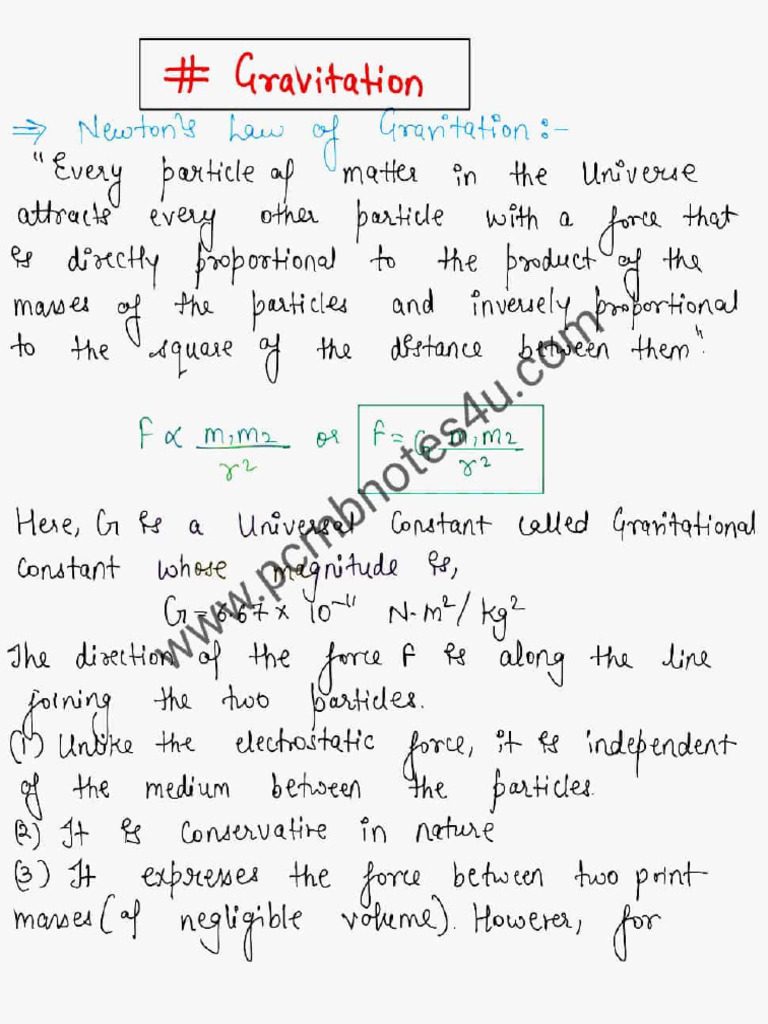 # Gravitation
⇒ Newton's Law of Gravitation:-
"Every particle of matter in the Universe
attracts every other particle with a force that
is directly proportional to the product of the
masses of the particles and inversely proportional
to the square of the distance between them".
F ∝ m₁m₂/r² or F = G m₁m₂/r²
Here, G is a Universal Constant called Gravitational
Constant whose magnitude is,
G = 6.67 × 10⁻¹¹ N-m²/kg²
The direction of the force F is along the line
joining the two particles.
(1) Unlike the electrostatic force, it is independent
of the medium between the particles.
(2) It is conservative in nature
(3) It expresses the force between two print
masses (of negligible volume). However, for
www.pcmbnotes4u.com